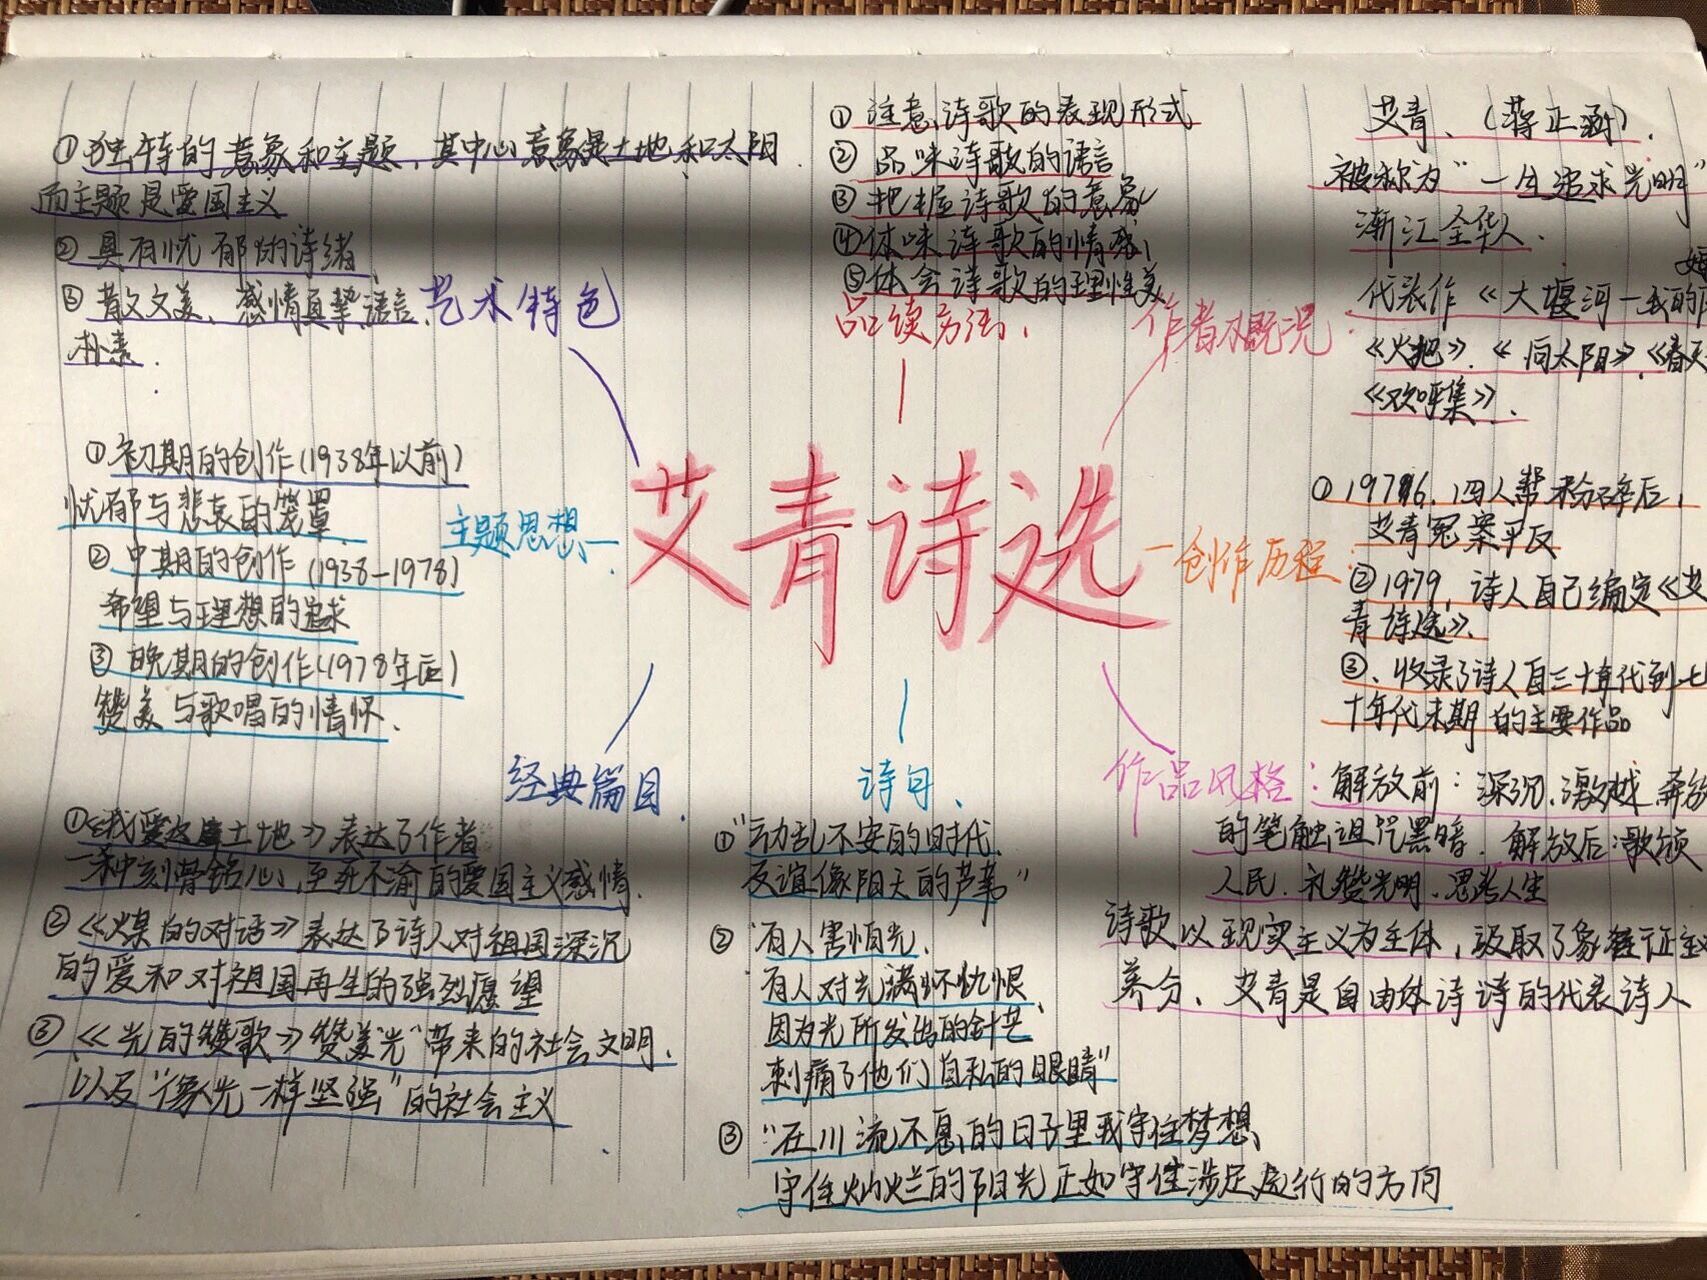 艾青诗选
艺术特色
①独特的意象和主题，其中心意象是土地和太阳
而主题是爱国主义
②具有忧郁的诗绪
③散文美、感情真挚、语言
朴素.
品读方法、
①注意诗歌的表现形式
②品味诗歌的语言
③把握诗歌的意象
④体味诗歌的情感
⑤体会诗歌的理性美
作者概况
艾青、（蒋正涵）.
被称为“一生追求光明”
浙江金华人.
代表作《大堰河—我的保
《火把》.《向太阳》.《春天
《欢呼集》.
主题思想
①初期的创作(1938年以前)
忧郁与悲哀的笼罩
②中期的创作(1938-1978)
希望与理想的追求
③晚期的创作(1978年后)
赞美与歌唱的情怀.
创作历程:
①1976，四人帮粉碎后，
艾青冤案平反
②1979，诗人自己编定《艾
青诗选》.
③、收录了诗人自三十年代到七
十年代末期的主要作品
经典篇目
①《我爱这土地》表达了作者
一种刻骨铭心，至死不渝的爱国主义感情.
②《煤的对话》表达了诗人对祖国深沉
的爱和对祖国再生的强烈愿望
③《光的赞歌》赞美“光”带来的社会文明.
以及“像光一样坚强”的社会主义
诗句、
①“动乱不安的时代
友谊像阴天的芦苇”
②“有人害怕光、
有人对光满怀仇恨、
因为光所发出的针芒
刺痛了他们自私的眼睛”
③“在川流不息的日子里我守住梦想
守住灿烂的阳光正如守住涉足远行的方向
作品风格：解放前：深沉、激越、奔放
的笔触诅咒黑暗．解放后：歌颂
人民．礼赞光明、思考人生
诗歌以现实主义为主体，汲取了象征主义
养分、艾青是自由体诗诗的代表诗人